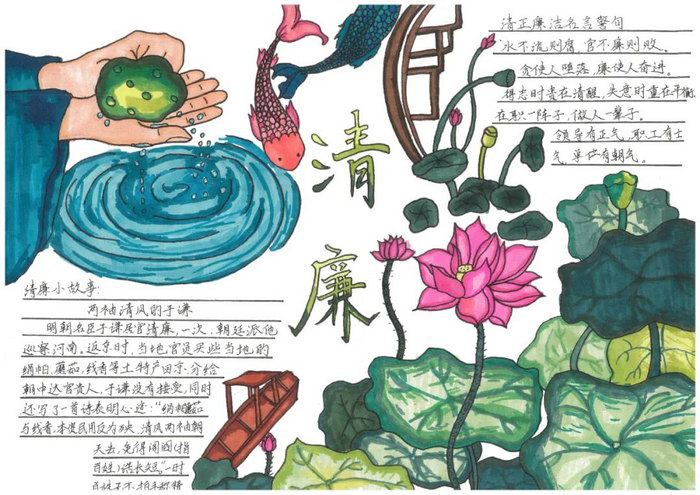 清正廉洁名言警句
水不流则腐,官不廉则败。
贪使人堕落,廉使人奋进。
得志时贵在清醒,失意时重在平衡
在职一阵子,做人一辈子。
领导有正气,职工有士
气,单位有朝气。
清
廉
清廉小故事:
两袖清风的于谦
明朝名臣于谦居官清廉,一次,朝廷派他
巡察河南。返京时,当地官员买些当地的
绢帕、蘑菇、线香等土特产回京,分给
朝中达官贵人,于谦没有接受,同时
还写了一首诗表明心迹:"绢帕蘑菇
与线香,本资民用反为殃,清风两袖朝
天去,免得闾阎(指
百姓)话长短。"一时
百姓无不拍手称赞